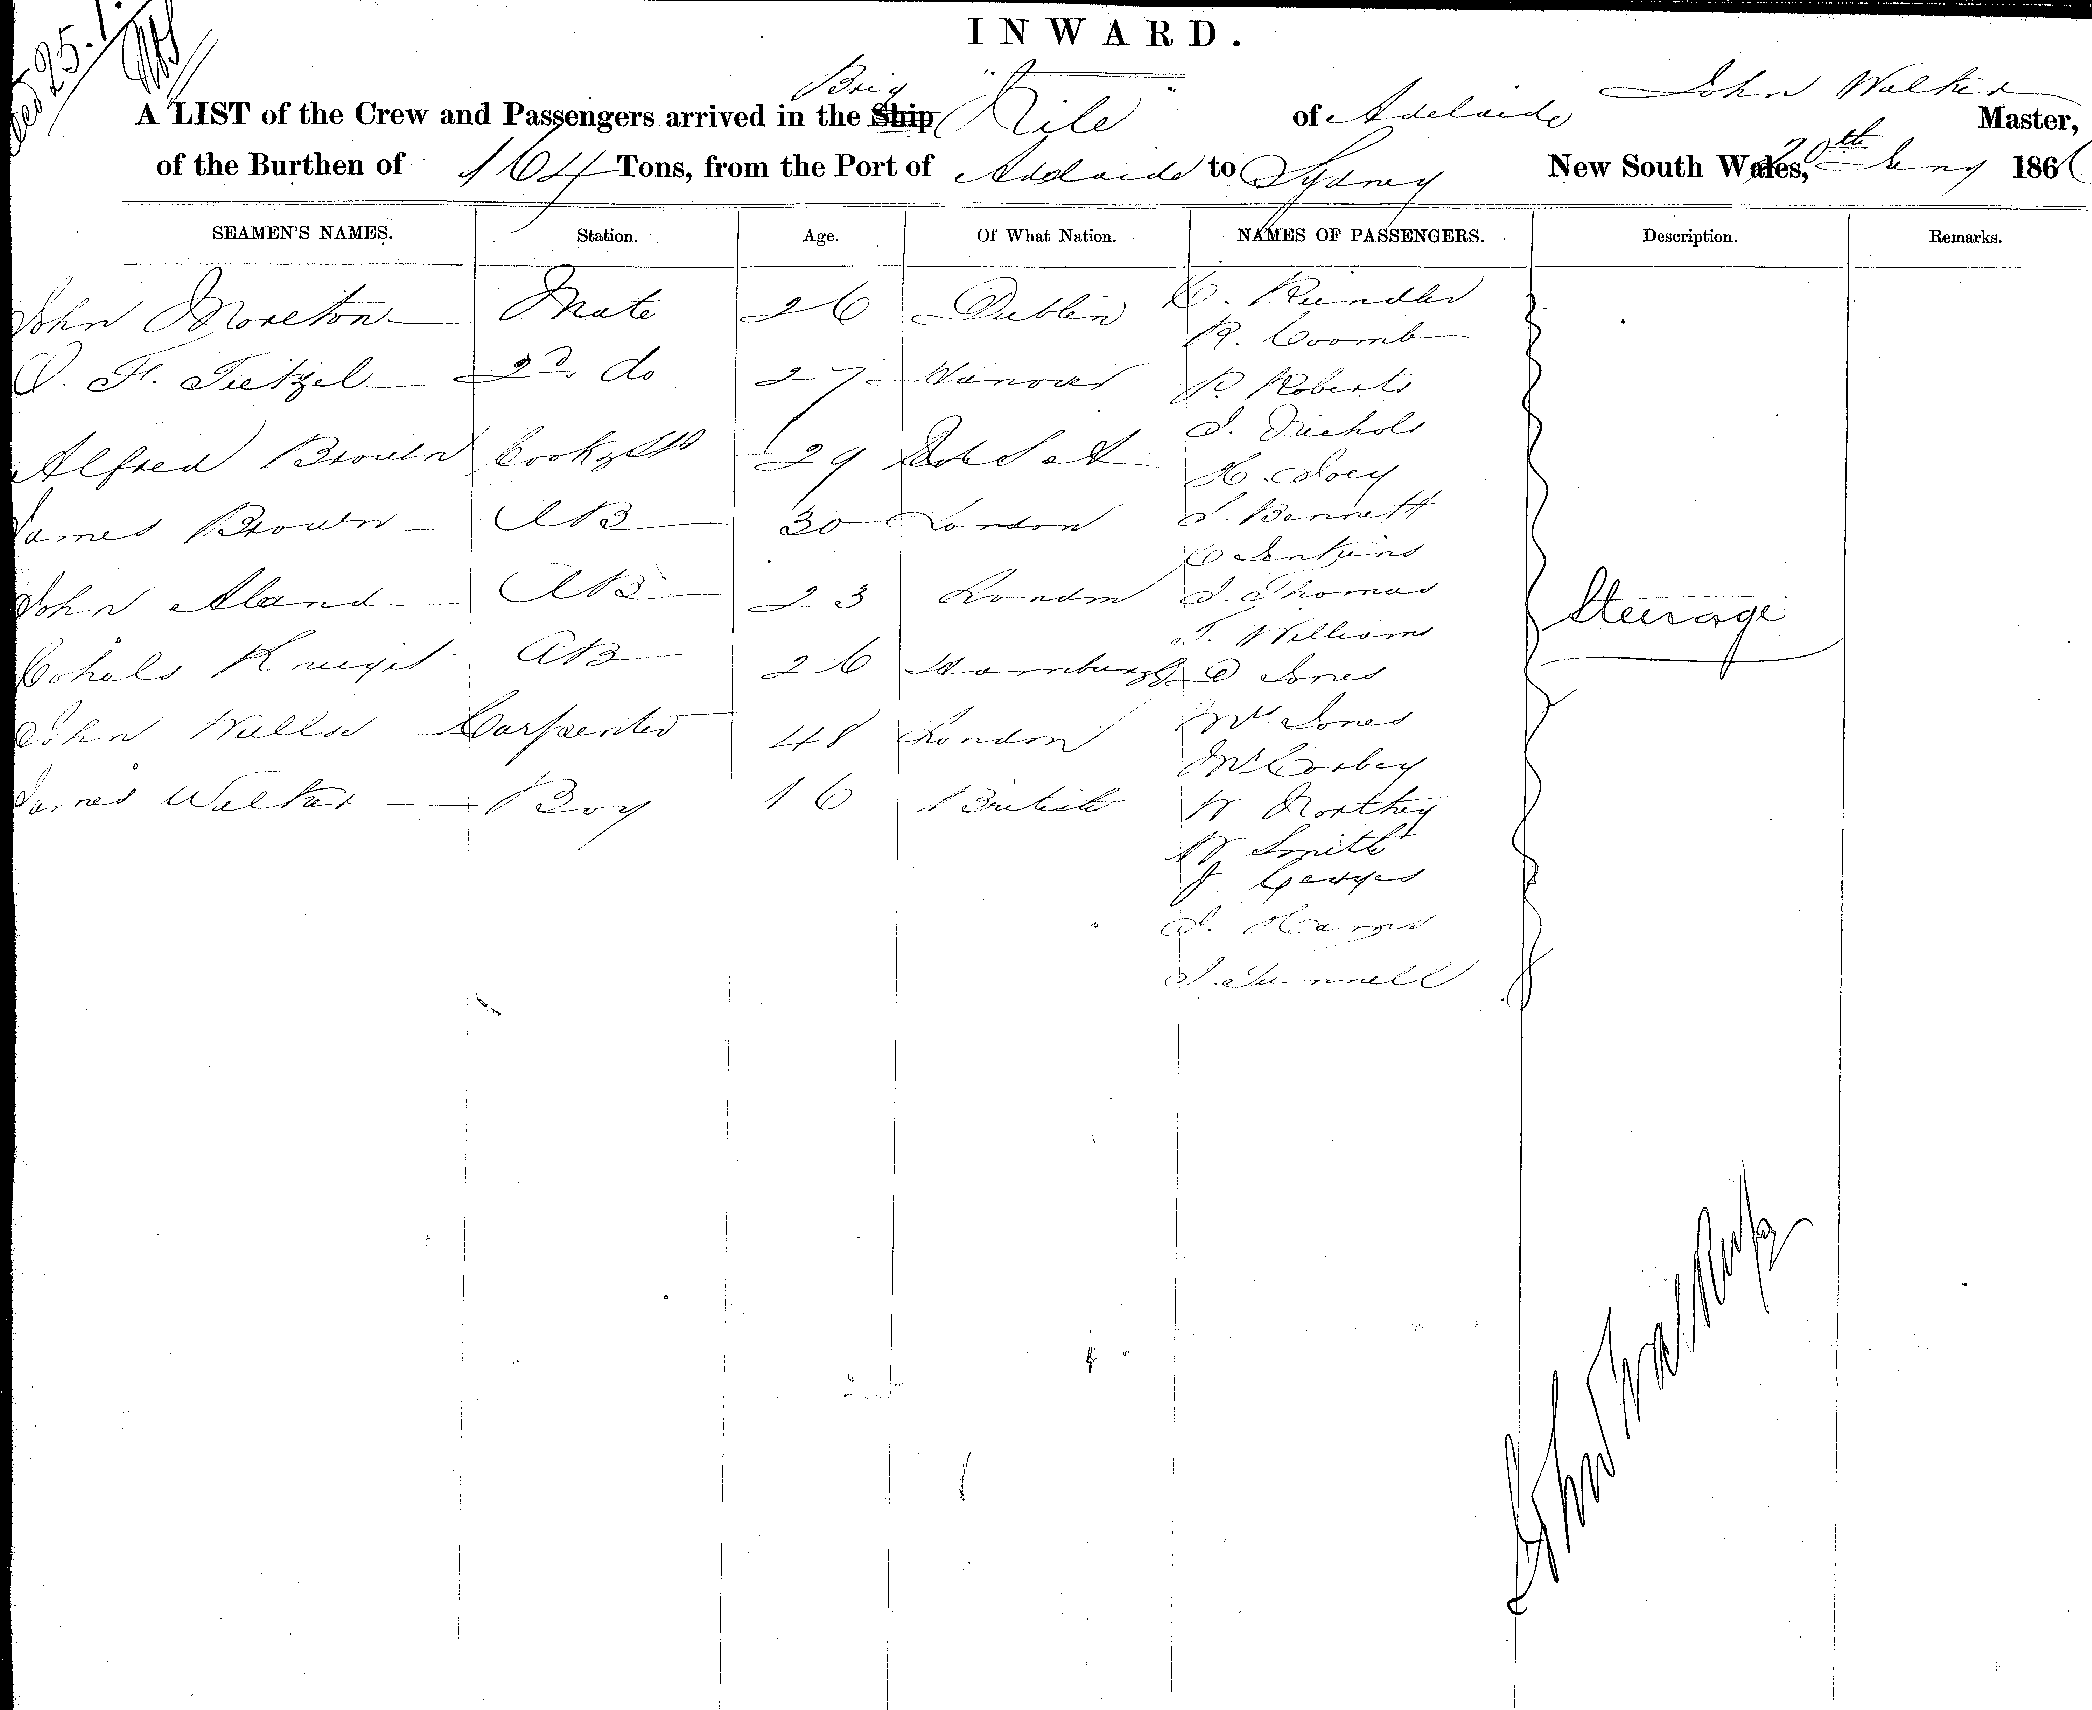 25.1
INWARD.
Brig
A LIST of the Crew and Passengers arrived in the Ship "Nile" of Adelaide John Walker Master,
of the Burthen of 164 Tons, from the Port of Adelaide to Sydney New South Wales, 20th Jany 186
SEAMEN'S NAMES. Station. Age. Of What Nation. NAMES OF PASSENGERS. Description. Remarks.
John Moreton Mate 26 Dublin
F. Tietzel 2nd do 27 Hanover
Alfred Brown Cook & 29
James Brown AB 30 London
John Aland AB 23 London
AB 26 Hamburg
John Carpenter 48 London
James Walker Boy 16 British
C. Rundle
R. Coomb
R. Roberts
J. Nichols
H.
J. Bennett
C Jenkins
J. Thomas
T. Williams
D Jones
Jones
Corbey
W Northey
W Smith
J Georges
J.
J.
Steerage
John Walker